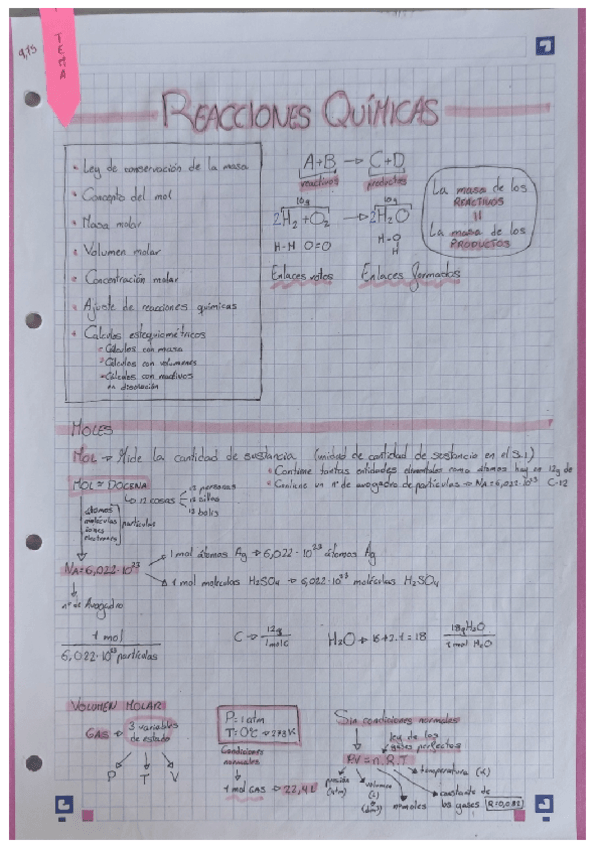 9,75
TEMA
REACCIONES QUÍMICAS
• Ley de conservación de la masa
• Concepto del mol
• Masa molar
• Volumen molar
• Concentración molar
• Ajuste de reacciones químicas
• Calculos estequiométricos
• Cálculos con masa
• Cálculos con volumenes
• Cálculos con reactivos
en disolución
A+B → C+D
reactivos productos
10g 10g
2H₂+O₂ → 2H₂O
H-H O=O H-O
H
Enlaces rotos Enlaces formados
La masa de los
REACTIVOS
=
La masa de los
PRODUCTOS
MOLES
MOL → Mide la cantidad de sustancia (unidad de cantidad de sustancia en el S.I)
• Contiene tantas entidades elementales como átomos hay en 12g de
C-12
• Contiene un nº de avogadro de partículas → NA=6,022·10²³
MOL = DOCENA
↳ 12 cosas
12 personas
12 sillas
12 bolis
átomos
moléculas
iones
electrones
partículas
NA=6,022·10²³
→ 1 mol átomos Ag → 6,022·10²³ átomos Ag
→ 1 mol moleculas H₂SO₄ → 6,022·10²³ moléculas H₂SO₄
nº de Avogadro
1 mol
6,022·10²³ partículas
C → 12g
1mol C
H₂O → 16+2·1=18
18g H₂O
1 mol H₂O
VOLUMEN MOLAR
GAS → 3 variables
de estado
P T V
P=1atm
T=0ºC → 273K
Condiciones
normales
1 mol GAS → 22,4L
Sin condiciones normales
ley de los
gases perfectos
PV=n.R.T
presión
(atm)
volumen
(L)
(dm³)
nº moles
temperatura (K)
constante de
los gases R=0,082